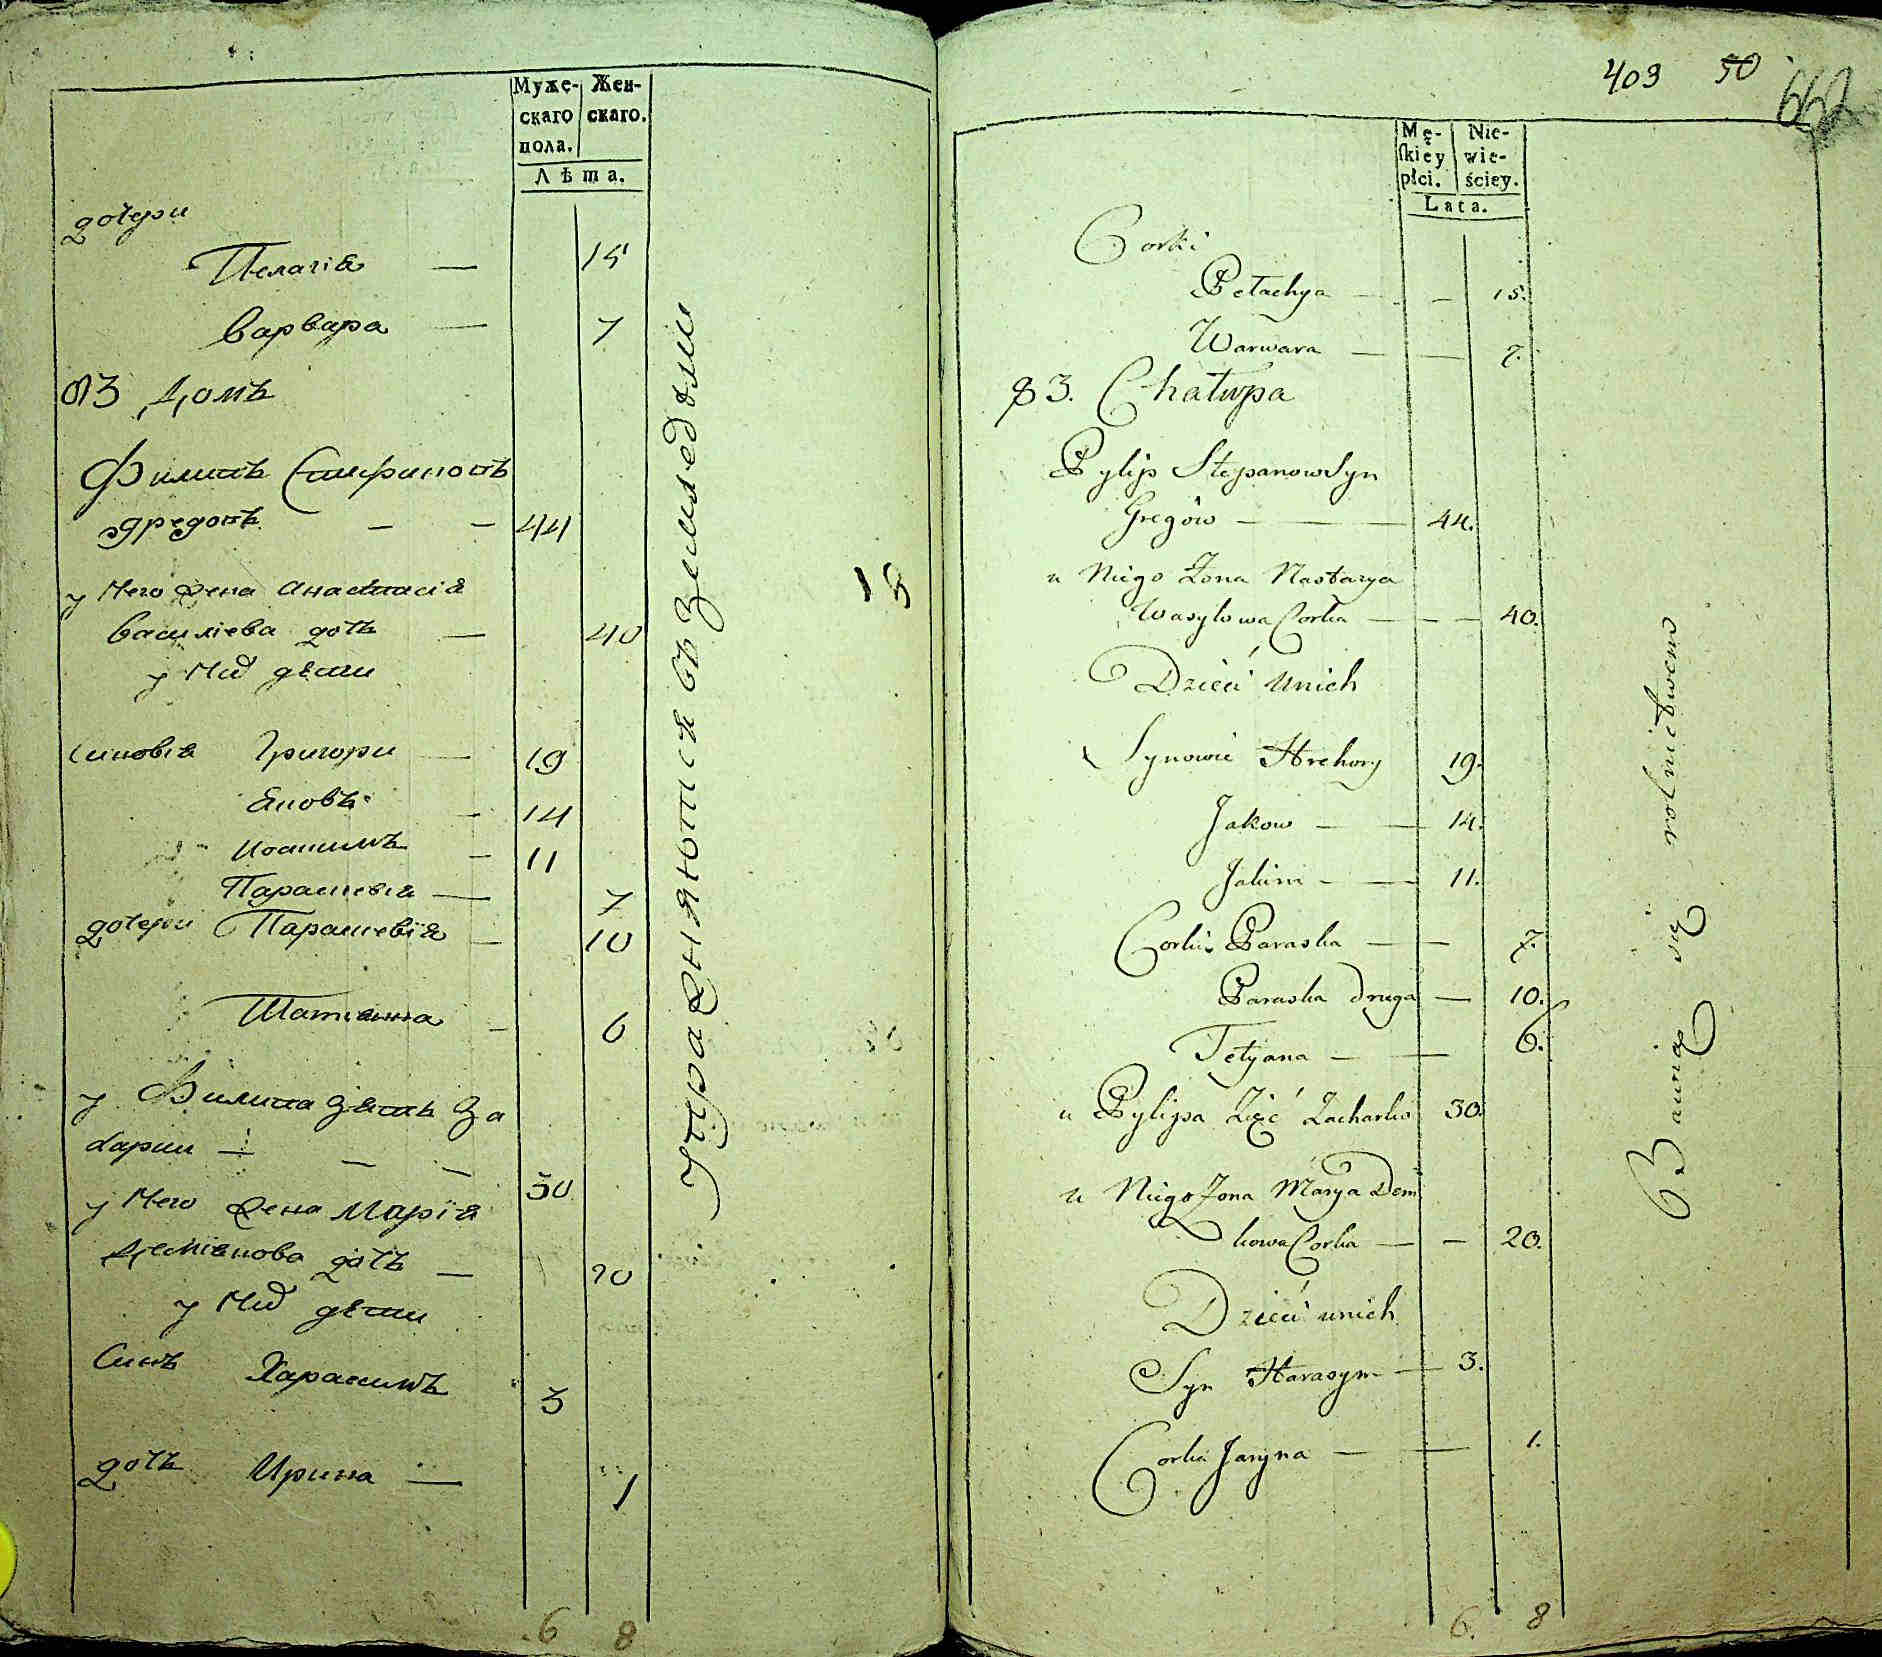 Муже-
скаго
пола.
Жен-
скаго.
Лѣта.
дочери
Пелагіа — 15
Варвара — 7
83 Домъ
Филипъ Стефановъ
— — 44
у Него жена Анастасіа
Василіева дочь — 40
у Них дѣти
Синовіа Григори — 19
Яковъ — 14
Иоакимъ — 11
Парасковіа — 7
дочери Параскевіа — 10
Татіанна — 6
у Филипа зять За
харии — — — 30
у Него жена Маріа
Деміанова дочь — 20
у Них дѣти
Синъ Харасимъ 3
дочь Ирина — 1
6 8
Упражняются въ Земледѣли
13
409 50 662
Mę-
skiey
płci.
Nie-
wie-
ściey.
Lata.
Corki
Pełachya — — 15.
Warwara — — 7.
83. Chałupa
Pylip Stepanow Syn
Gregów — — — 44.
u Niego Żona Nastazya
Wasylowa Corka — — — 40.
Dzieci u nich
Synowie Hrehory 19.
Jakow — — 14.
Jakim — — 11.
Corki Paraska — — 7.
Paraska druga — 10.
Tetyana — — 6.
u Pylipa Zięć Zacharko 30.
u Niego Zona Marya Dem
kowa Corka — — 20.
Dzieci u nich
Syn Harasym — 3.
Corka Jaryna — — 1.
6. 8
Bawią się rolnictwem